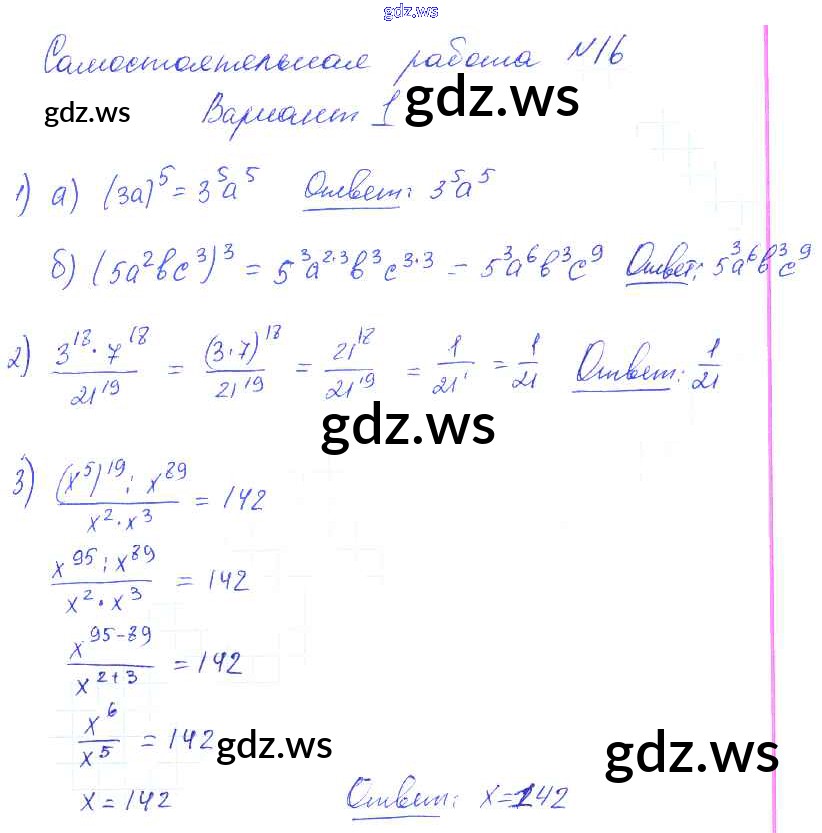 gdz.ws
Самостоятельная работа №16
gdz.ws Вариант 1 gdz.ws
1) а) (3a)⁵ = 3⁵a⁵ Ответ: 3⁵a⁵
б) (5a²bc³)³ = 5³a²·³b³c³·³ = 5³a⁶b³c⁹ Ответ: 5³a⁶b³c⁹
2) (3¹⁸·7¹⁸)/21¹⁹ = (3·7)¹⁸/21¹⁹ = 21¹⁸/21¹⁹ = 1/21¹ = 1/21 Ответ: 1/21
gdz.ws
3) ((x⁵)¹⁹ : x⁸⁹)/(x²·x³) = 142
(x⁹⁵ : x⁸⁹)/(x²·x³) = 142
x⁹⁵⁻⁸⁹/x²⁺³ = 142
x⁶/x⁵ = 142 gdz.ws gdz.ws
x = 142 Ответ: x=142